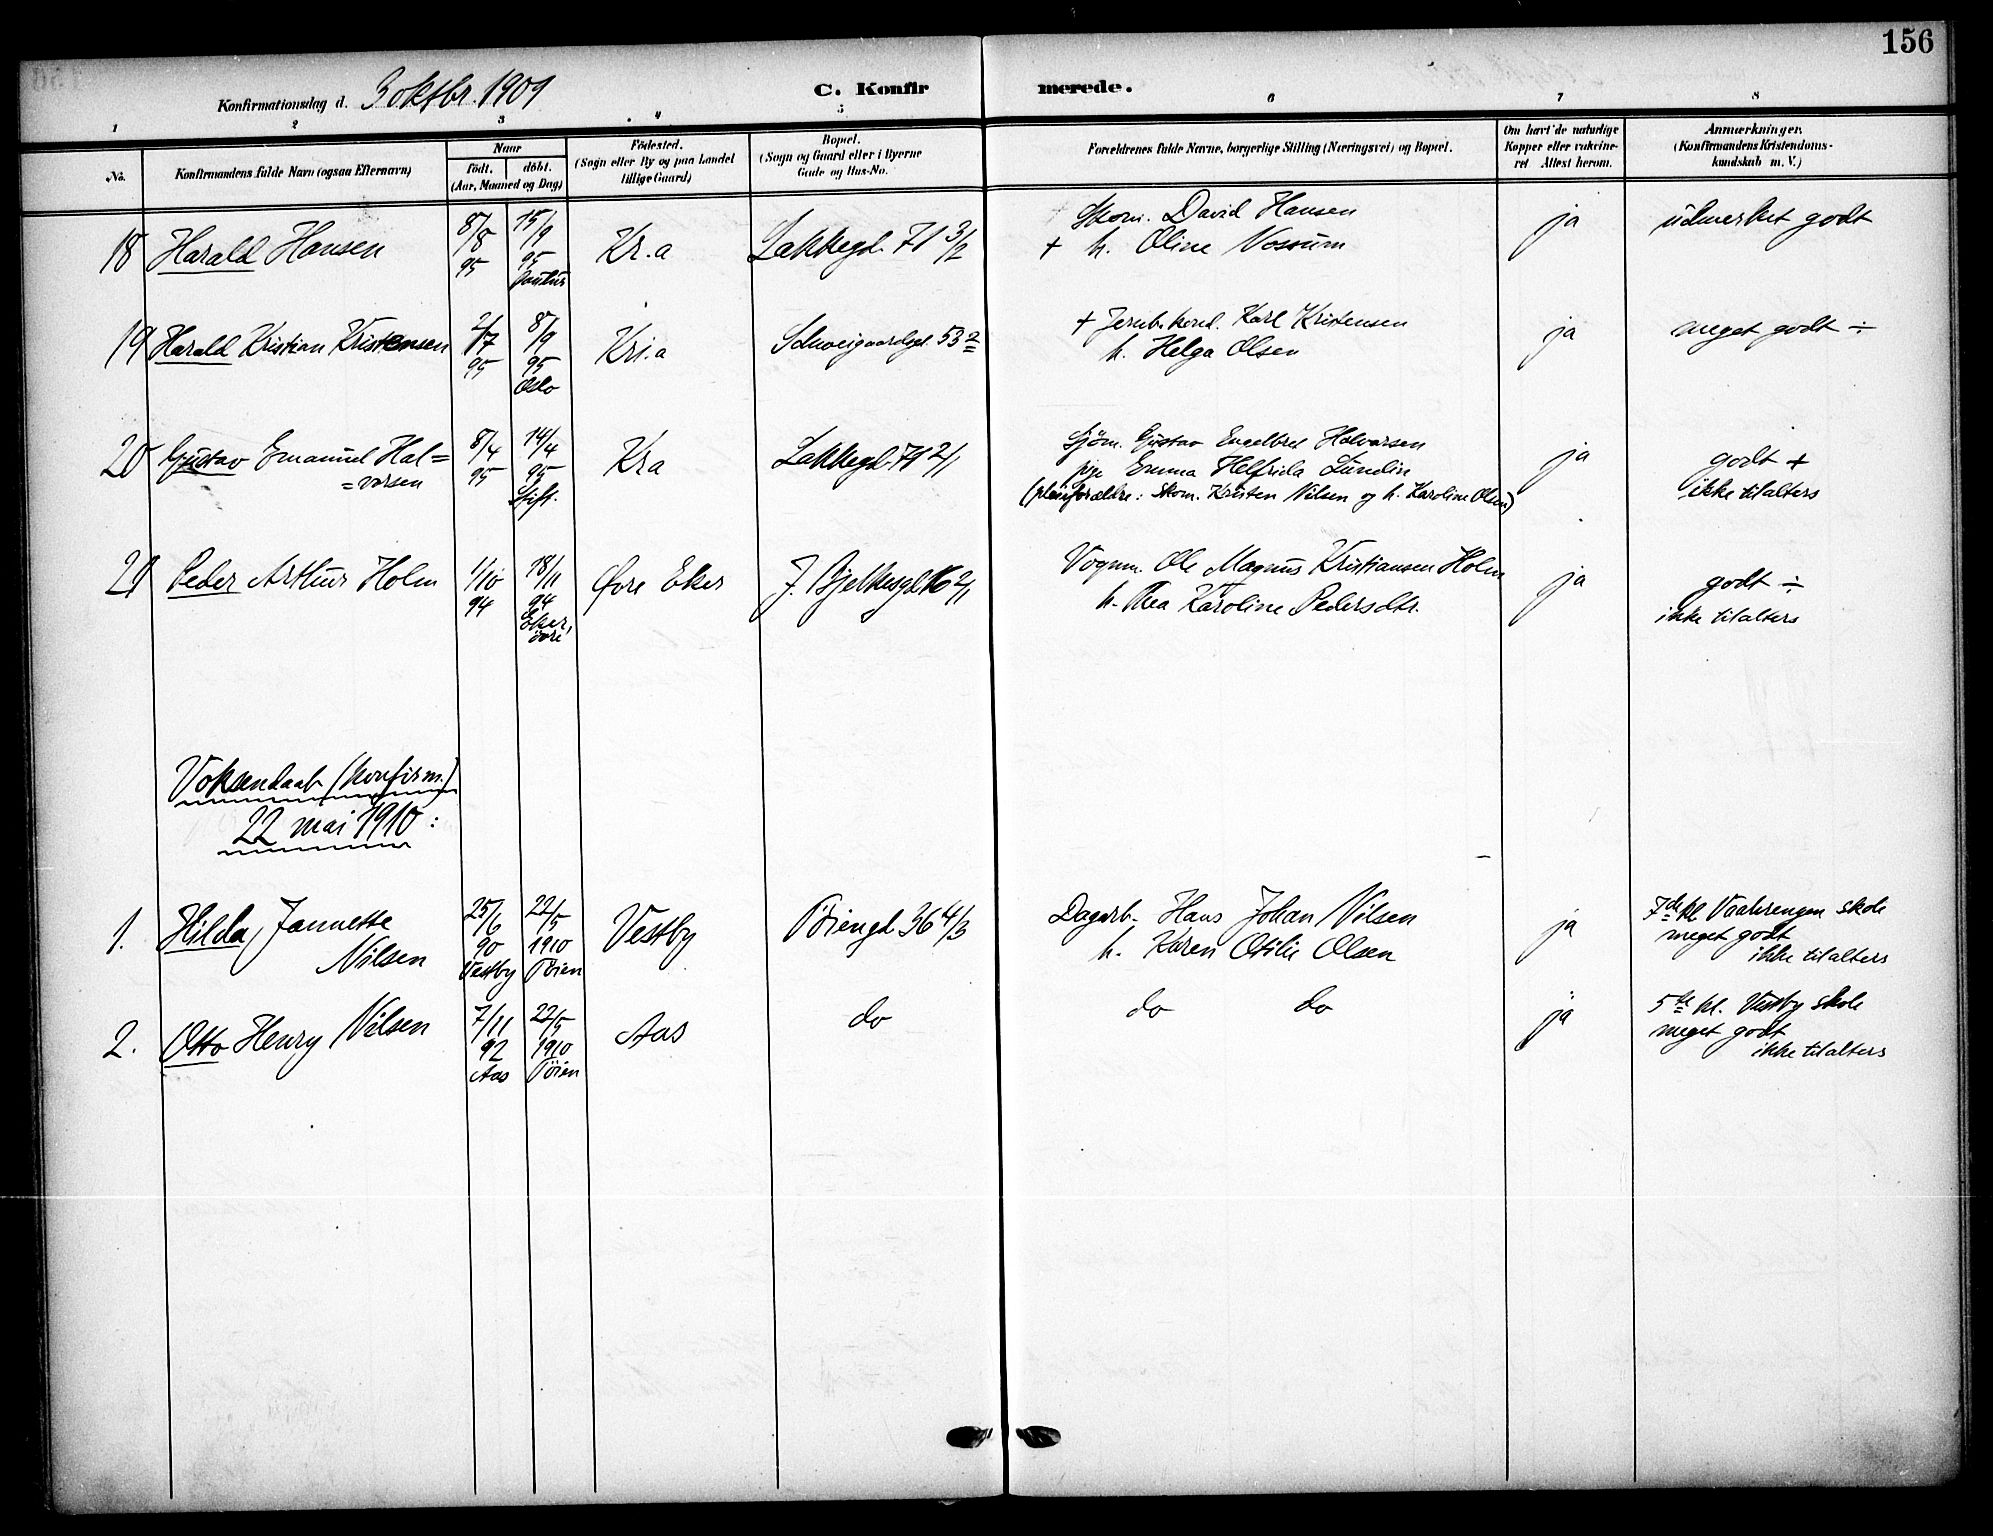 156
Konfirmationsdag d. 3 oktbr. 1909
C. Konfirmerede.
1 2 3 4 5 6 7 8
No. Konfirmandens fulde Navn (ogsaa Efternavn) Naar födt. döbt. (Aar, Maaned og Dag) Födested. (Sogn eller By og paa Landet tillige Gaard) Bopæl. (Sogn og Gaard eller i Byerne Gade og Hus-No. Forældrenes fulde Navne, borgerlige Stilling (Næringsvei) og Bopæl. Om havt de naturlige Kopper eller vakcineret Attest herom. Anmærkninger. (Konfirmandens Kristendomskundskab m. V.)
18 Harald Hansen 8/8 95 15/9 95 Paulus Kr.a Lakkegd. 71 3/2 Skom. David Hansen
+ h. Oline Vossum ja udmerket godt
19 Harald Kristian Kristensen 2/7 95 8/9 95 Oslo Kri.a Schweigaardsgt. 53 2 + Jernb. kond. Karl Kristensen
h. Helga Olsen ja meget godt ÷
20 Gustav Emanuel Hal=
=vorsen 8/4 95 14/4 95 Stift. Kra Lakkegd. 71 2/1 Sjöm. Gustav Engelbret Halvorsen
pige Emma Helfrida Lundin
(pleieforældre: Skom. Kristen Nilsen og h. Karoline Olsen) ja godt +
ikke tilalters
21 Peder Arthur Holm 1/10 94 18/11 94 Eker, övre Øvre Eker J. Bjelkesgd. 16 2/1 Vognm. Ole Magnus Kristiansen Holm
h. Thea Karoline Pedersdtr. ja godt ÷
ikke tilalters
Voksendaab (konfirm.)
22 mai 1910:
1. Hilda Jannette
Nilsen 25/6 90 Vestby 22/5 1910 Töien Vestby Töiengd. 36 4/3 Dagarb. Hans Johan Nilsen
h. Karen Otilie Olsen ja 7de kl Vaalerengen skole
meget godt
ikke tilalters
2. Otto Henry Nilsen 7/11 92 Aas 22/5 1910 Töien Aas do do do ja 5te kl. Vestby skole
meget godt
ikke tilalters